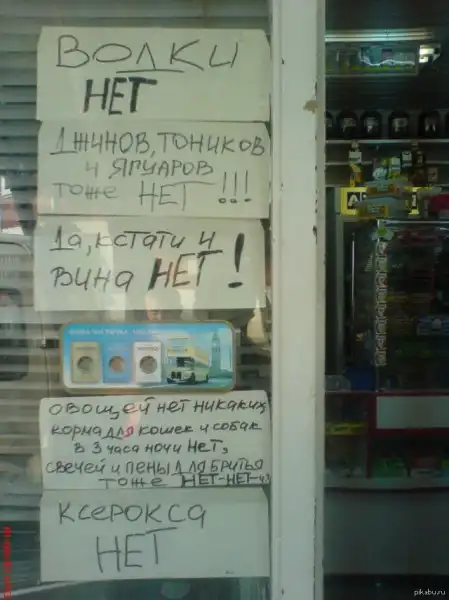 ВОЛКИ
НЕТ
ДЖИНОВ, ТОНИКОВ
И ЯГУАРОВ
тоже НЕТ !!!
Да, кстати и
вина НЕТ !
ОВОЩЕЙ НЕТ НИКАКИХ
корма для кошек и собак
в 3 часа ночи НЕТ,
свечей и пены для бритья
тоже НЕТ-НЕТ-и
КСЕРОКСА
НЕТ
pikabu.ru